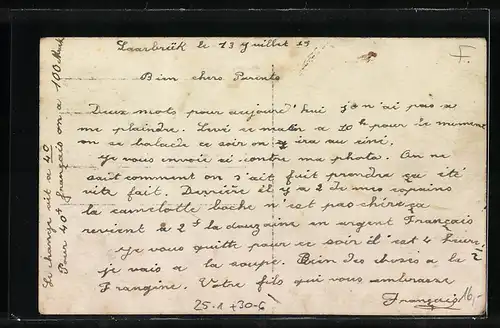 Saarbrük le 13 Juillet 19
Bien chers Parents
Deux mots pour aujourd'hui je n'ai pas a
me plaindre. Levé ce matin a 10h pour le moment
on se balade ce soir on ira au ciné.
Je vous envoie ci contre ma photo. On ne
sait comment on s'ait fait prendre ça été
vite fait. Derrière il y a 2 de mes copains
la camelotte boche n'est pas chère ça
revient le 2f la douzaine en argent Français
Je vous quitte pour ce soir il est 4 heures
je vais a la soupe. Bien des choses a la
Frangine. Votre fils qui vous embrasse
François
Le change est a 40
Pour 40f français on a 100 Mark
25-1 +30-6
16,-